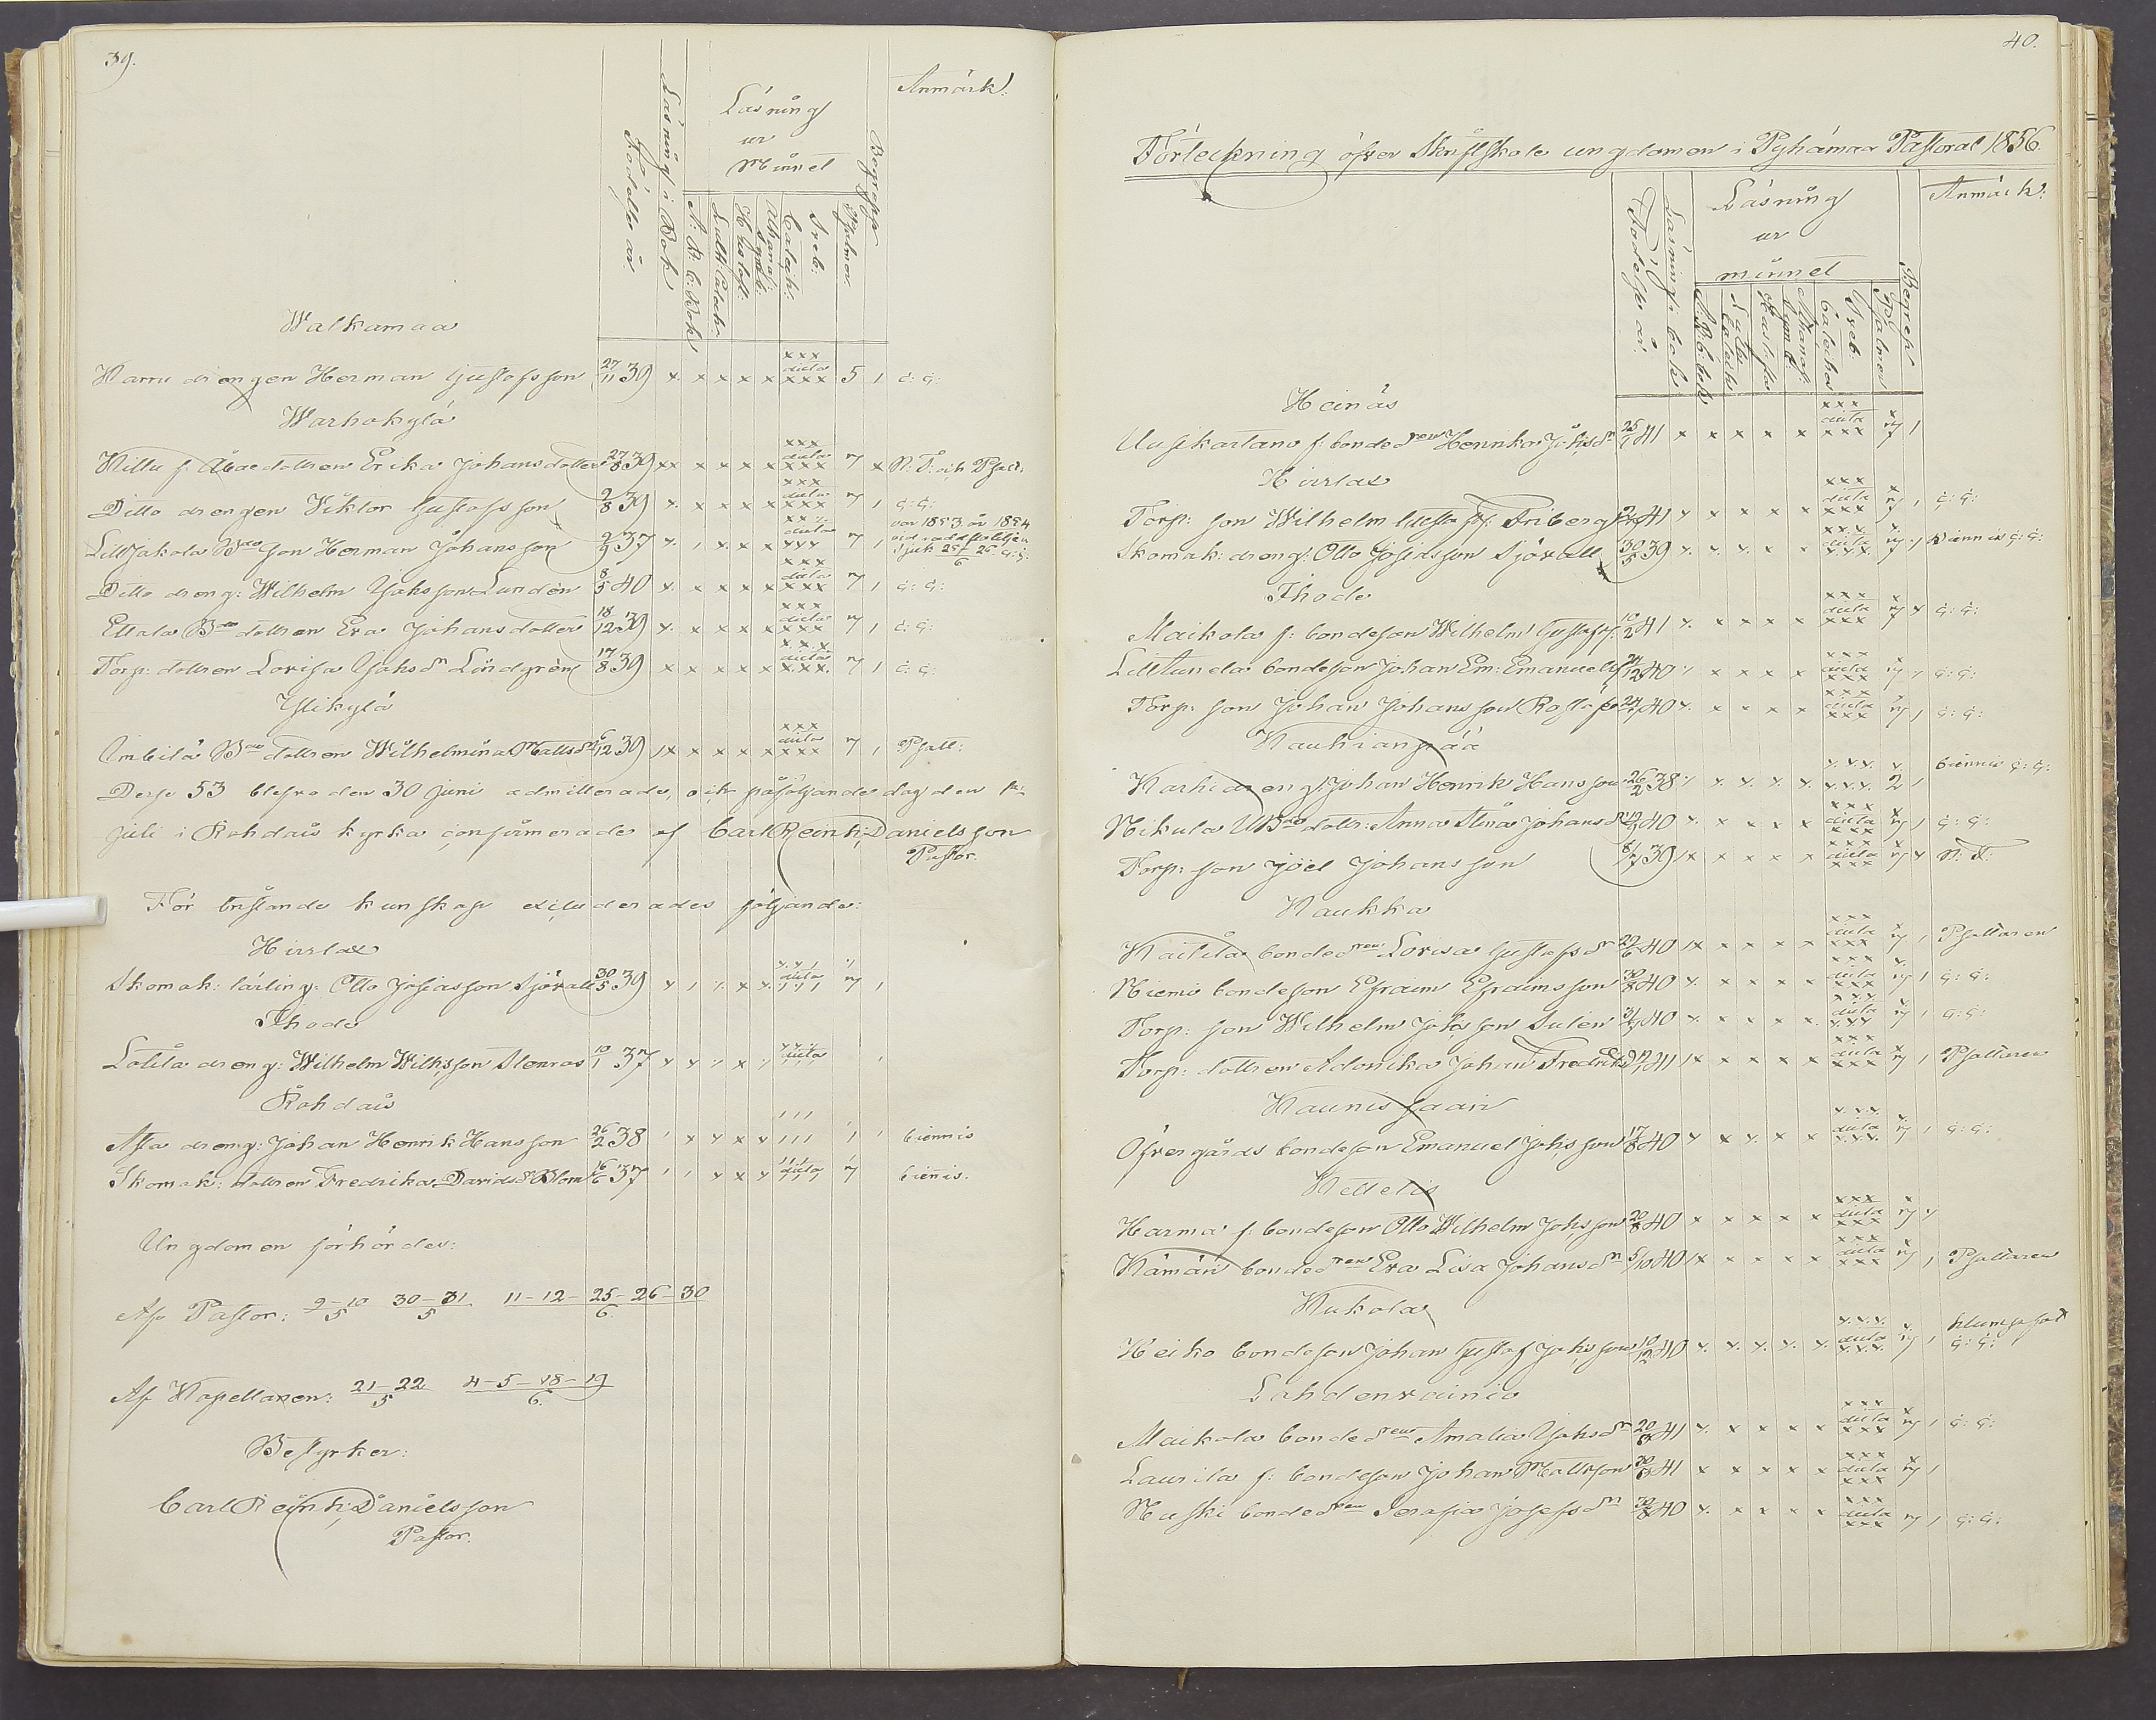 39.
Födelse år.
Läsning i Bok
Läsning
ur
Minnet
A. B. C. Bok
Luth: Catech:
Hustafl:
Athanasii
Symb:
Sveb:
Catech:
Psalmer
Begrepp
Anmärk:
Walkamaa
Karru drengen Herman Gustafsson 27/11 39 x x x x x xxx dicta xxx 5 1 G: G:
Warhokylä
Killu f. Åboedottren Erika Johansdotter 27/8 39 xx x x x x xxx dicta xxx 7 x N. T. och Psalt:
Ditto drengen Viktor Gustafsson 2/8 39 x x x x x xxx dicta xxx 7 1 G: G:
LillJakola Bdeson Herman Johansson 2/9 37 x 1 x x x xxx dicta xxx 7 1 var 1853 år 1854
Sjuk 25/6 26 G: G:
Ditto dreng: Wilhelm Jakssson Lundén 8/5 40 x x x x x xxx dicta xxx 7 1 G: G:
Ettala Bde dottren Eva Johansdotter 18/12 39 x x x x x xxx dicta xxx 7 1 G: G:
Torp: dottren Lovisa Jaksdr Lindgrén 17/8 39 x x x x x xxx dicta xxx 7 1 G: G:
Ylikylä
Ombitä Bde dottren Wilhelmina Mattsdr 6/12 39 1x x x x x xxx dicta xxx 7 1 Psalt:
Desse 53 blefvo den 30 Juni admitterade, och påföljande dag den 1:
Juli i Rohdais kyrka confirmerades af Carl Reinh: Danielsson
Pastor.
För bristande kunskap excluderades följande:
Hirslax
Skomak: lärling: Otto Josiasson Sjövall 30/5 39 x 1 x x x xx1 dicta 111 7 1
Ihode
Lotila dreng: Wilhelm Wilhsson Stenroos 10/1 37 x x x x x xxx dicta 111 1
Rohdais
Asta dreng: Johan Henrik Hansson 26/2 38 1 x x x x 111 111 1 1 biennis
Skomak: dottren Fredrika Davidsdr Blom 16/6 37 1 1 x x x 111 dicta 111 7 biennis.
Ungdomen förhördes:
Af Pastor: 9-10/5 30-31/5 11-12-25-26-30/6
Af Kapellanen: 21-22/5 4-5-18-19/6.
Bestyrker:
Carl Reinh: Danielsson
Pastor.
40.
Förteckning öfver Skriftskole ungdomen i Pyhämaa Pastorat 1856.
Födelse år.
Läsning i bok
Läsning
ur
minnet
A. B. C. bok
Luth:
Catech:
Hustafla
Athanas:
Symb:
Sveb:
Catechis
Psalmer
Begrep
Anmärk:
Heinäs
Uusikartano f. bondedren Henrika Johsdr 25/1 41 x x x x x xxx dicta xxx x 7 1
Hirslax
Torp: son Wilhelm Gustafs: Friberg 2/4 41 x x x x x xxx dicta xxx x 7 1 G: G:
Skomak: dreng: Otto Josiasson Sjövall 30/5 39 x x x x x xxx dicta xxx x 7 1 biennis G: G:
Ihode
Maikola f: bondeson Wilhelm Gustafs: 10/2 41 x x x x x xxx dicta xxx x 7 x G: G:
LillTunela bondeson Johan Em: Emanuels 24/12 40 1 x x x x xxx dicta xxx x 7 1 G: G:
Torp: son Johan Johansson Rostöfer 24/7 40 x x x x x xxx dicta xxx x 7 1 G: G:
Kauhianpää
Karhi dreng: Johan Henrik Hansson 26/2 38 1 x x x x xxx xxx x 2 1 biennis G: G:
Nikula Bde dottr: Anna Stina Johansdr 12/9 40 x x x x x xxx dicta xxx x 7 1 G: G:
Torp: son Joël Johansson 8/7 39 1x x x x x xxx dicta xxx x 7 x N: T:
Kaukka
Kaitila bondedren Lovisa Gustafsdr 22/6 40 1x x x x x xxx dicta xxx x 7 1 Psaltaren
Niemi bondeson Efraim Efraimsson 30/8 40 x x x x x xxx dicta xxx x 7 1 G: G:
Torp: son Wilhelm Johsson Sulén 3/4 40 x x x x x xxx dicta xxx x 7 1 G: G:
Torp: dottren Adonika Johan Fredriksdr 12/1 41 1x x x x x xxx dicta xxx x 7 1 Psaltaren
Kaunissaari
Öfvergårds bondeson Emanuel Johsson 17/8 40 x x x x x xxx dicta xxx x 7 1 G: G:
Kettelis
Harma f. bondeson Otto Wilhelm Johsson 20/8 40 x x x x x xxx dicta xxx x 7 x
Kämäri bondedren Eva Lisa Johansdr 5/10 40 1x x x x x xxx dicta xxx x 7 1 Psaltaren
Kukola
Heiko bondeson Johan Gustaf Johsson 10/12 40 x x x x x xxx dicta xxx x 7 1 klumpfot
G: G:
Lahdenvainio
Maikola bondedren Amalia Jaksdr 20/8 41 x x x x x xxx dicta xxx x 7 1 G: G:
Laurila f: bondeson Johan Mattsson 30/6 41 x x x x x xxx dicta xxx x 7 1
Maski bondedren Serafia Josefsdr 30/8 40 x x x x x xxx dicta xxx 7 1 G: G: